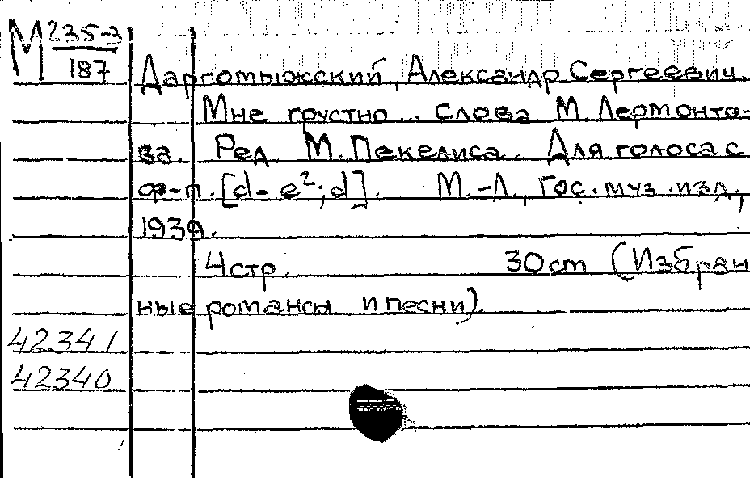 М 235-3
187
Даргомыжский, Александр Сергеевич.
Мне грустно... слова М. Лермонто-
ва. Ред. М. Пекелиса. Для голоса с
ф-п. [d - e²; d]. М.-Л., Гос. муз. изд.,
1939.
4 стр. 30 cm (Избран-
ные романсы и песни).
42341
42340